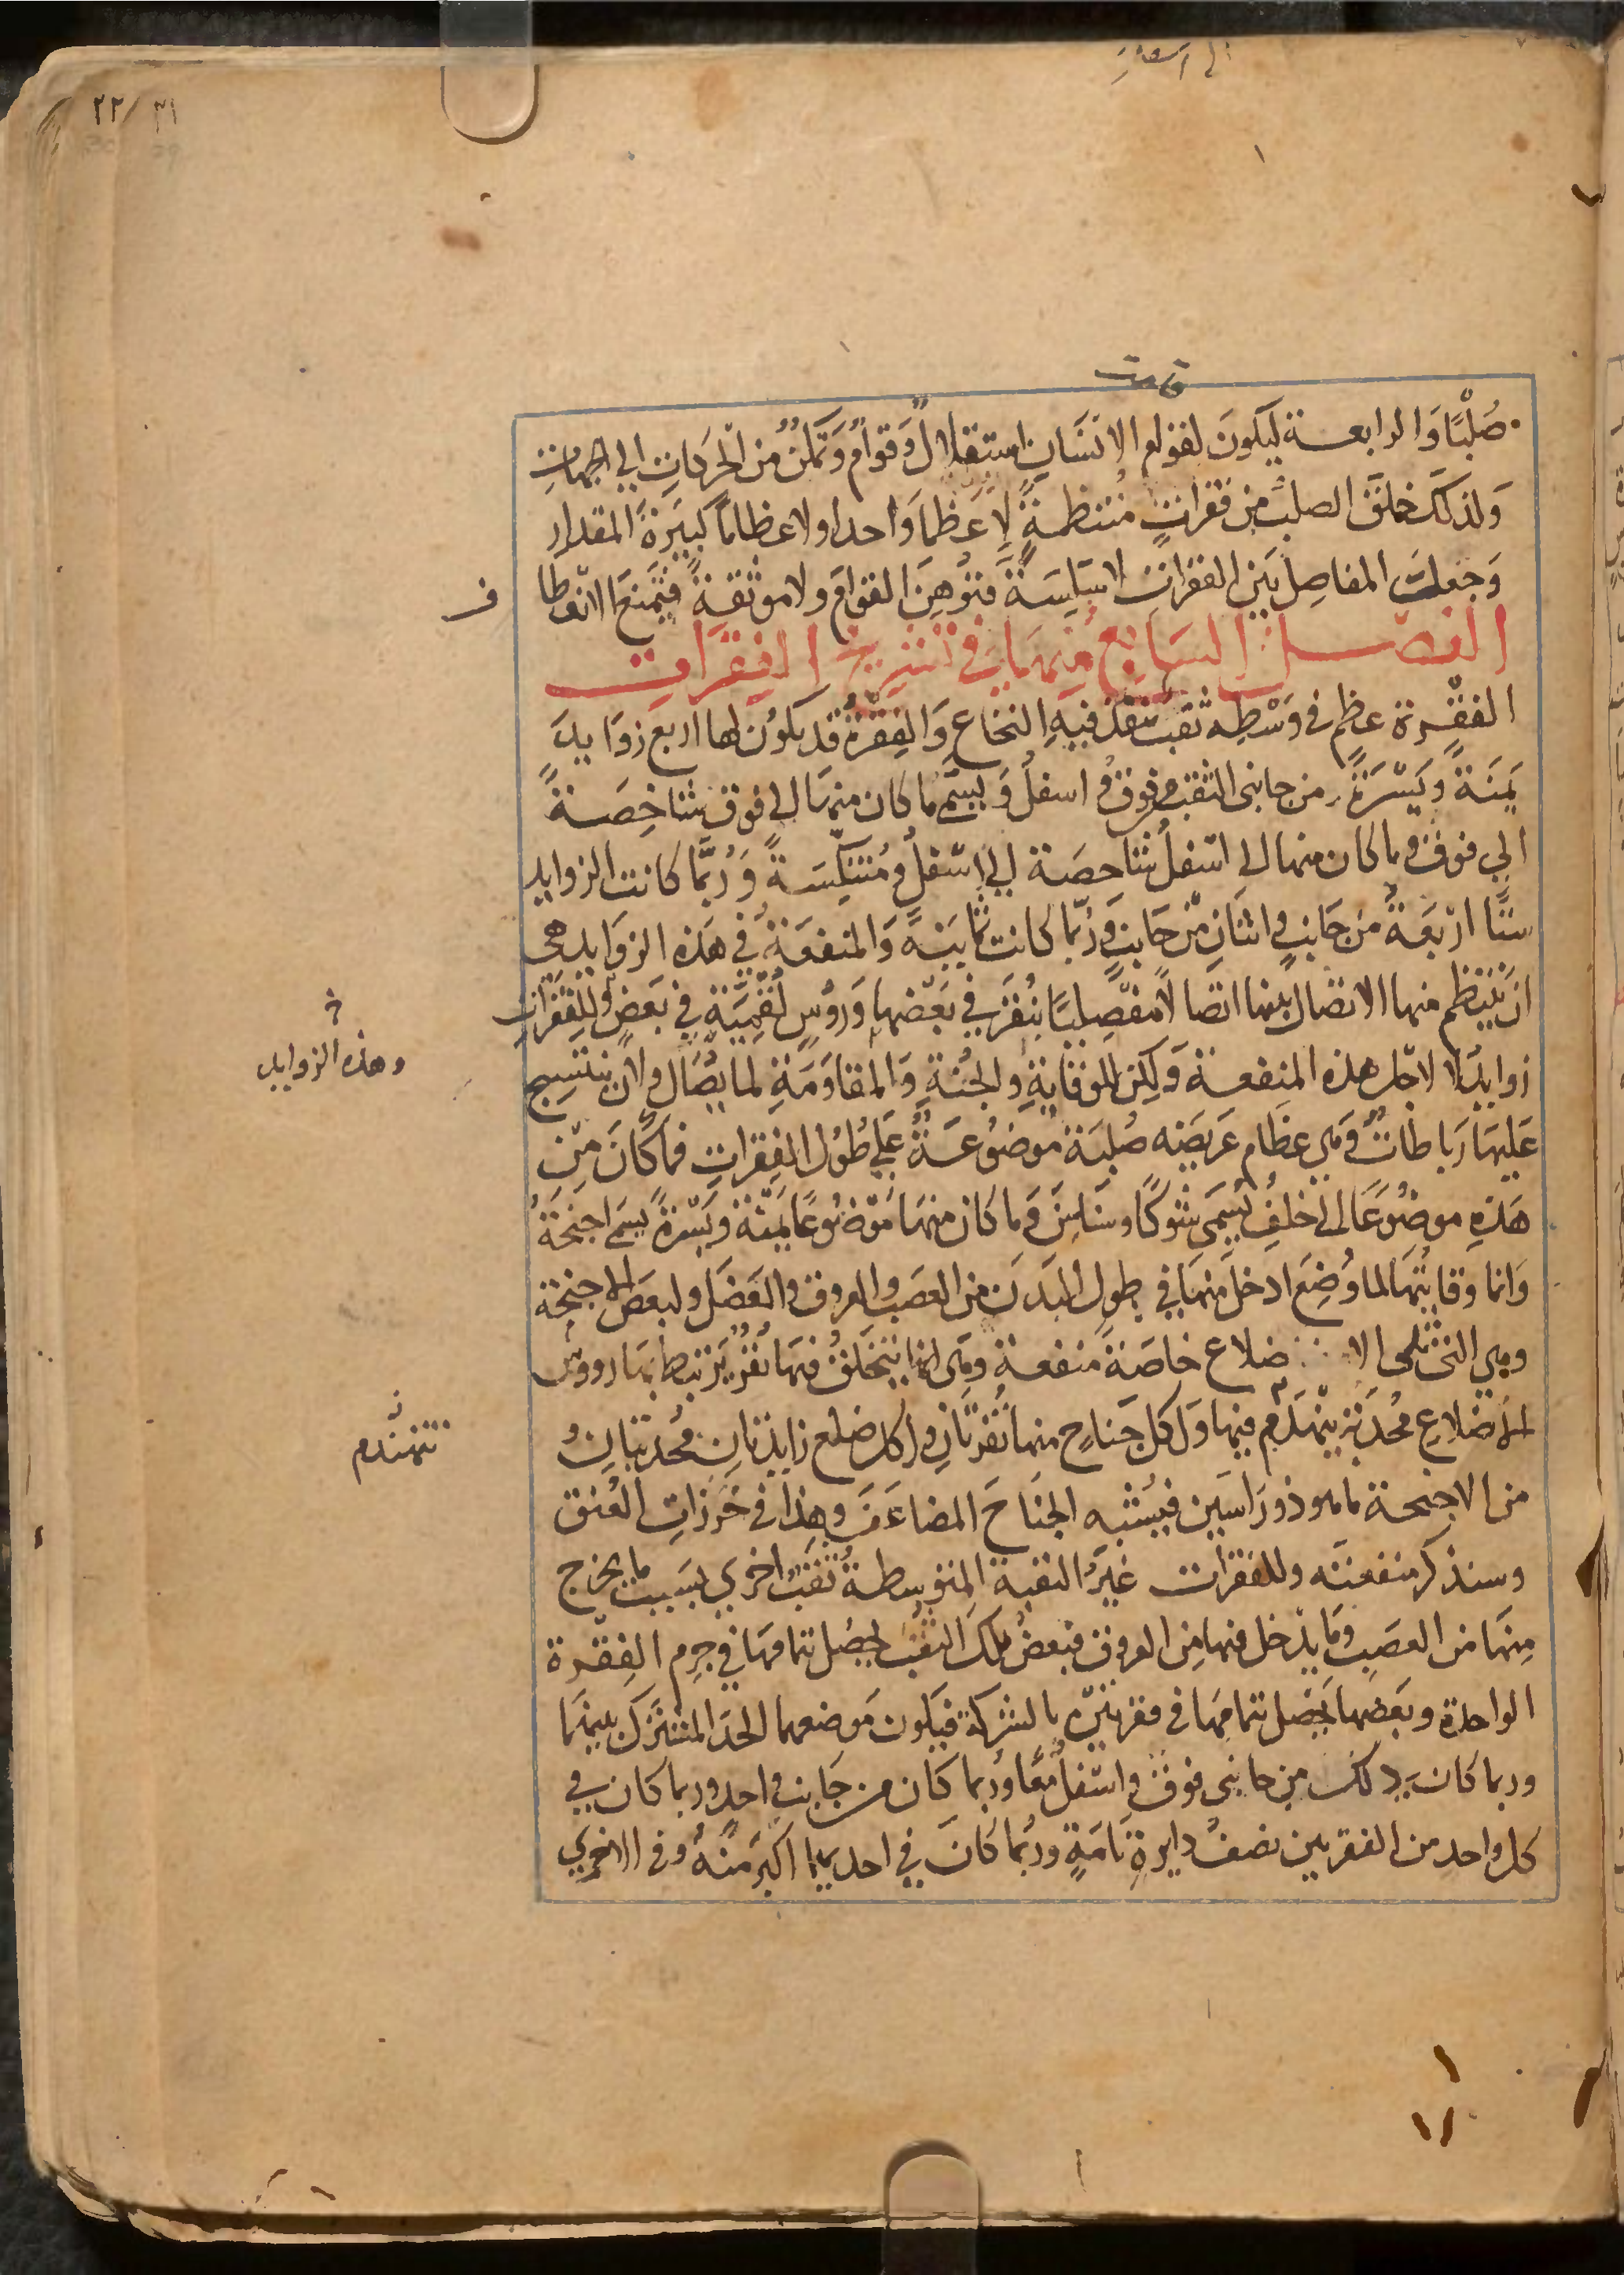 ٣١/ ٢٢
قامت
صُلْبًا وَالرابعـة ليكونَ لقوام الانسَان استقلالٌ وَقوامٌ وَتمكنٌ من الحركاتِ الي الجهاتِ
وَلذلكَ خلقَ الصلبُ من فقراتٍ مُنتظمةٍ لا عَظمًا وَاحدا ولا عظامًا كبيرَةَ المقدار
وَجعلت المفاصِل بَين الفقراتِ لا سَلِسَةً فتوُهِنَ القوامَ ولا موثقةً فتمنعَ الانعطا
ف
الفصـــل السَابع منهَا في تشريح الفِقرَات
الفقْـرة عظم في وَسْطِه ثقب ينفذ فيهِ النخاع وَالفِقرةُ قد يكوُن لها اربع زوَايدَ
يَمنَةً وَيَسْرَةً من جانبى الثقب فوق و اسفلُ وَيسَمّى ما كان منهَا الى فوق شاخِصَـةً
الي فوق وما كان منها الى اسْفلُ شاخصَة الي اسْفلُ ومُنتكِسَةً وَرُبَّما كانت الزوايد
ستًا ارْبَعَةٌ من جَانبٍ واثنانِ مّن جَانبٍ وَربّما كانت ثمانيَةً وَالمنفعَةُ في هَذه الزوَايد هى
انْ يَنتظم منها الاتصَال بينها اتصالًا مفصِليًا بنُقَرٍ في بَعْضهَا وَروُسٍ لُقَمِيَّةٍ في بَعضٍ وَللفِقرَاتِ
زوايدُ لا لاجل هذه المنفعـة وَلكِن للوقايةِ والجُنّةِ وَالمقاوَمَةِ لما يُصَال ولان ينتسِج
وهذه الزوايد
عَليهَا رَباطاتٌ وَهي عظام عَريضَه صُلبَة موْضوُعـةٌ عَلي طُوُل الفِقراتِ فما كَانَ مِن
هَذهِ موضُوعًا الى خلفُ يُسَمى شوكًا وسَناسِنَ وَما كان منهَا موْضوُعًا يَمنَة وَيَسْرَةً يسمَى اجنحَةً
وَانما وقايتُهَا لما وُضِعَ ادخل منهَا في طولِ البَدَن من العصَب والعروق والعَضَل ولبعضِ الاجنِحَة
وهي التى تلى الا ضلاع خاصَةً منفعـة وَهى انها يتخلقُ فيهَا نُقَرٌ يَرتبط بهَا رووس
الاضلاعِ مُحدَبَة يتهندَم فيها وَلكل جَناحٍ منها نُقرتانِ ولكل ضلع زايدتانِ مُحدبتانِ وُ
تتهندم
من الاجنحـة ماهو ذو رَاسَين فيُشبه الجنَاحَ المضاعَفَ وهذا في خَرَزاتِ العُنق
وسنذكر منفعتَه وللفقرات غيَرُ الثقبة المتوسطـةُ ثقبٌ اخرى بسَببِ ما يخرج
مِنهَا من العصَبِ وَمَا يدْخل فيها مِن العروق فبعضُ تلكَ الثقب يحصُل بتمامهَا في جِرم الفِقـرة
الواحدة وبَعضها يحصُل بتمامهَا في فقرتيْن بالشركة فيكون مَوضعهما الحدَ المشترك بينهمَا
وربما كان ذلك من جانبى فوقَ واسْفلُ مَعًا ورُبما كان من جَانبٍ واحدٍ وربما كان في
كل واحد من الفقرتين نصفُ دايرةٍ تامَةٍ وربُما كانَ في احديهما اكبَرَ منهُ وفى الاخري